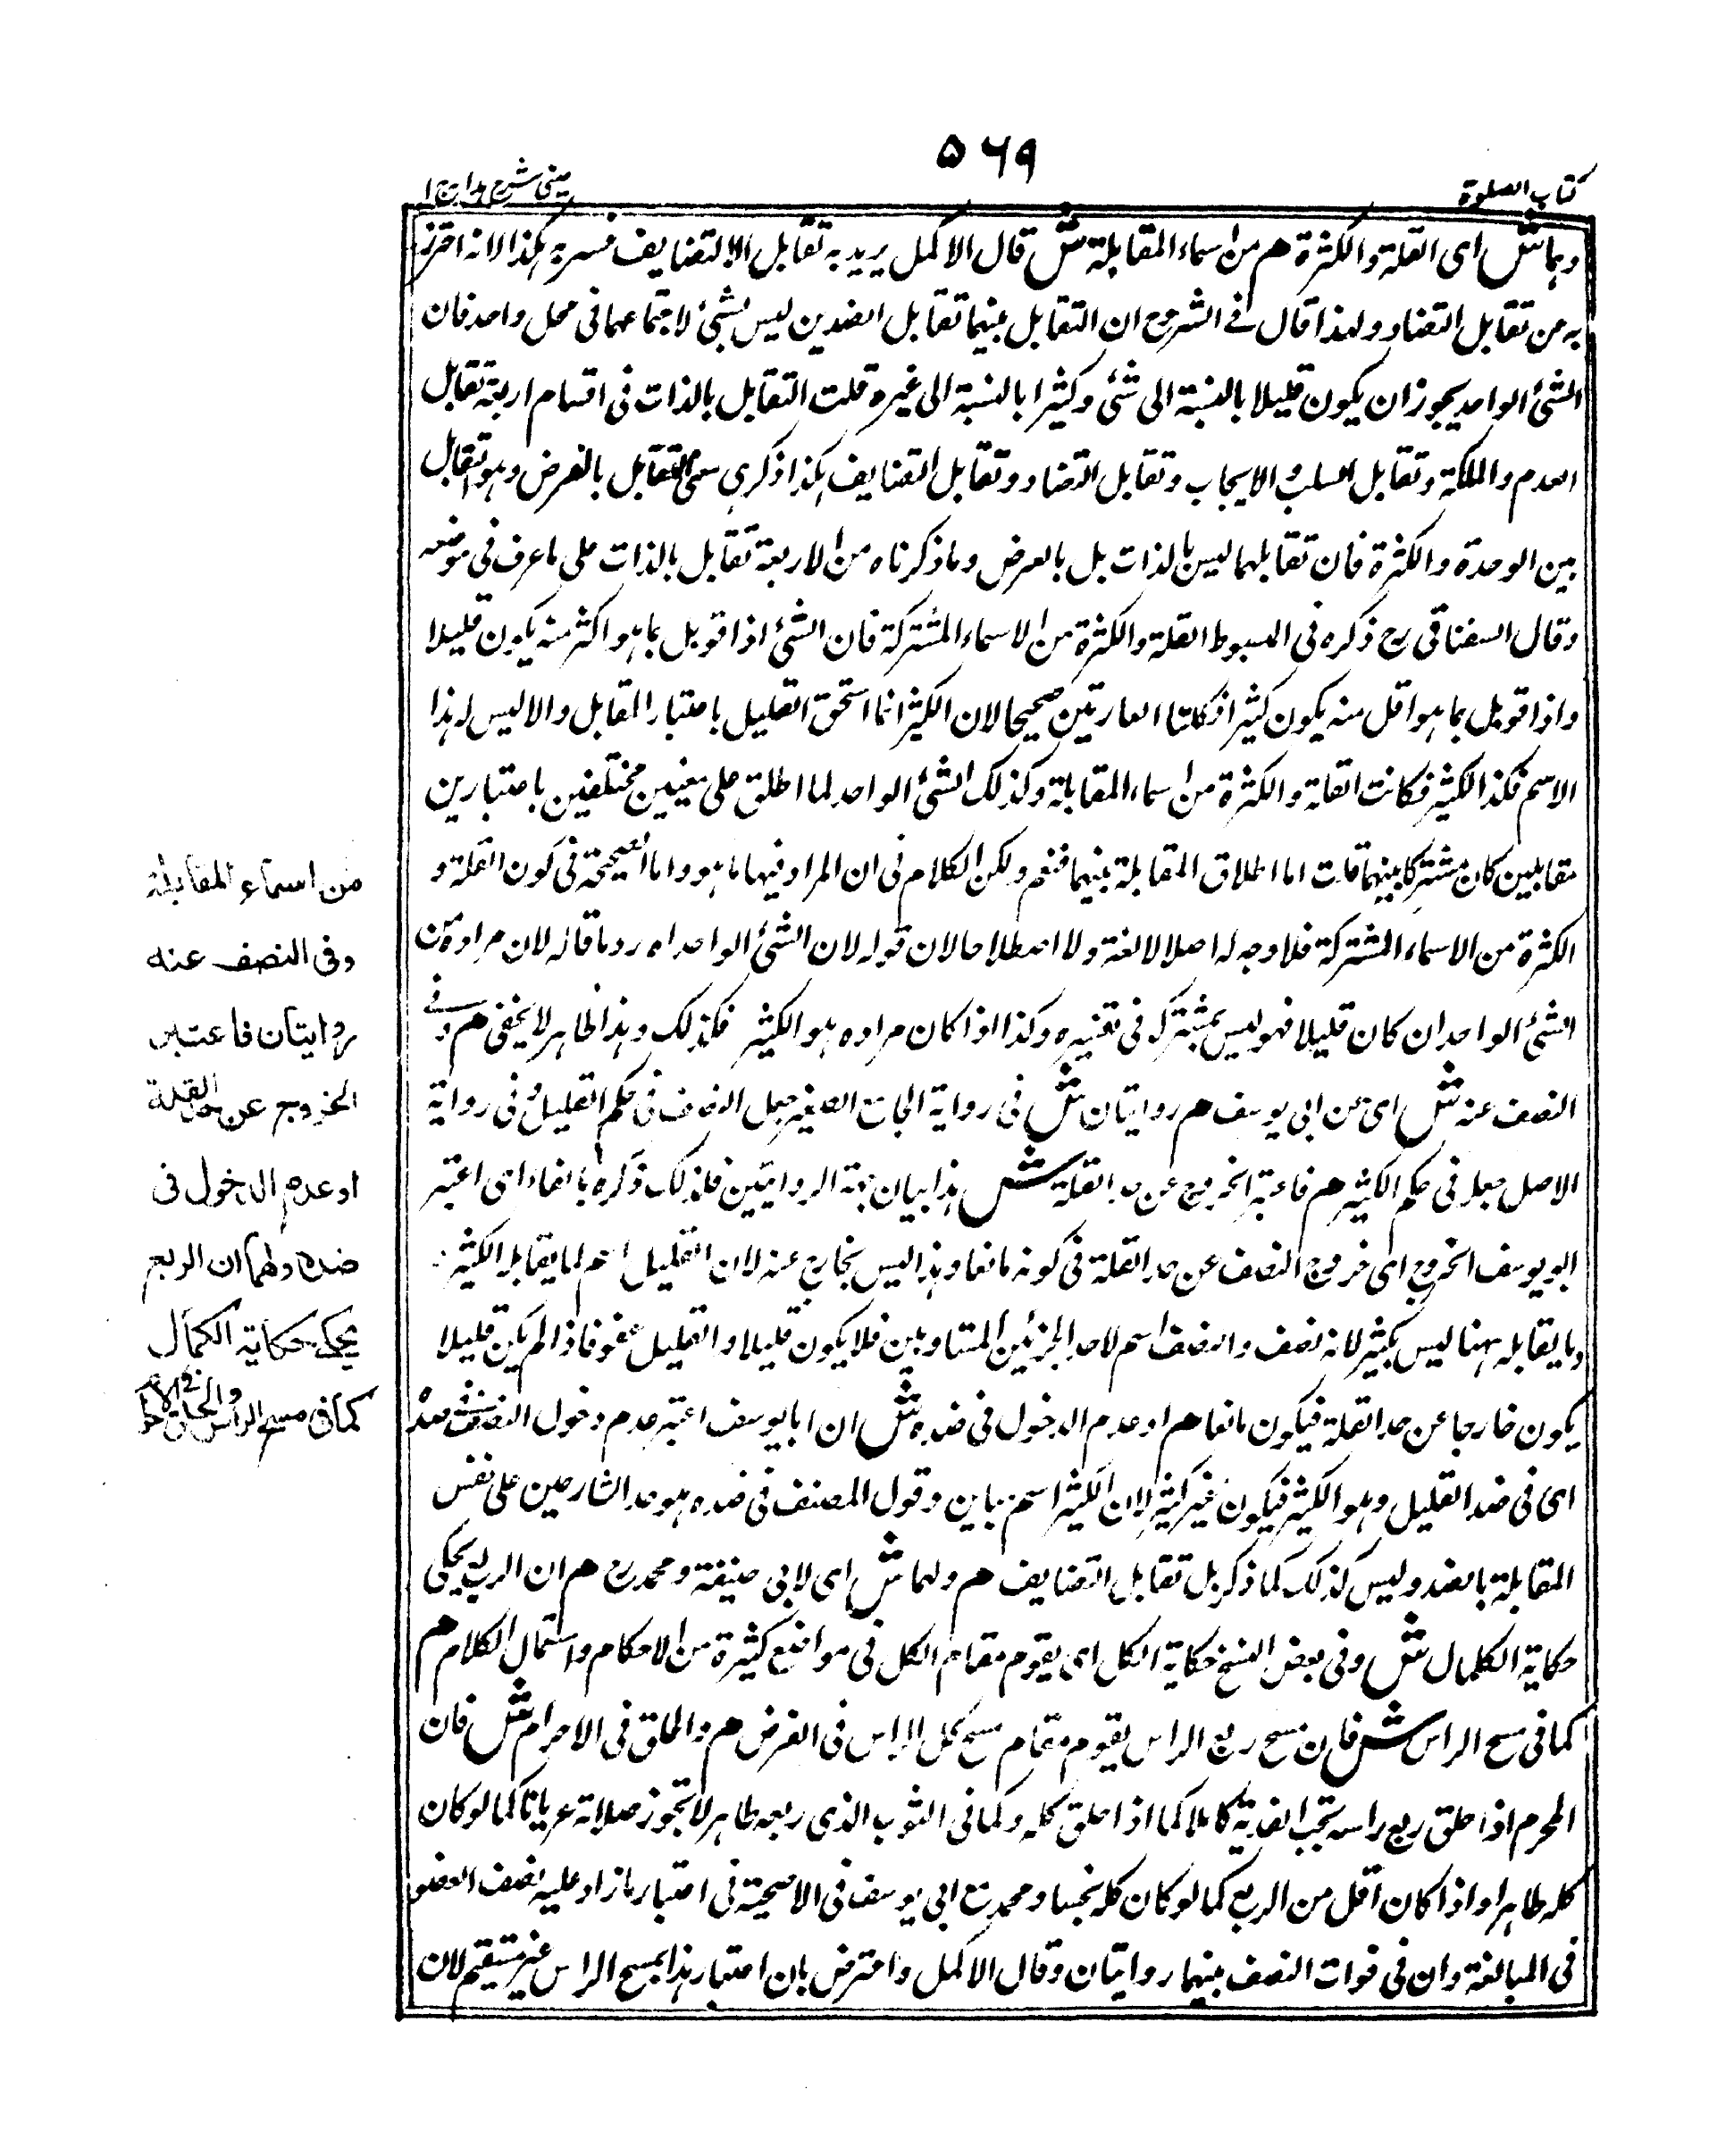 ۵۶۹
كتاب الصلوة
عينى شرح هدايه ج ا
وهما ش اى القلة والكثرة هم من اسماء المقابلة ش قال الاكمل يريد به تقابل التضايف فسره هكذا لانه احترز
به من تقابل التضاد ولهذا قال فى الشروح ان التقابل بينهما تقابل الضدين ليس بشئ لاجتماعهما فى محل واحد فان
الشئ الواحد يجوز ان يكون قليلا بالنسبة الى شئ وكثيرا بالنسبة الى غيره قلت التقابل بالذات فى اقسام اربعة تقابل
العدم والملكة وتقابل السلب والايجاب وتقابل التضاد وتقابل التضايف هكذا ذكرى سمى التقابل بالعرض وهو تقابل
بين الوحدة والكثرة فان تقابلهما ليس بالذات بل بالعرض وما ذكرناه من الاربعة تقابل بالذات على ما عرف فى موضعه
وقال السغناقى رح ذكره فى المبسوط القلة والكثرة من الاسماء المشتركة فان الشئ اذا قوبل بما هو اكثر منه يكون قليلا
واذا قوبل بما هو اقل منه يكون كثيرا فكلتا العبارتين صحيحا لان الكثير انما استحق القليل باعتبار المقابل والا ليس له هذا
الاسم فكذا الكثير فكانت القلة والكثرة من اسماء المقابلة وكذلك الشئ الواحد لما اطلق على معنيين مختلفين باعتبارين
مقابلين كان مشتركا بينهما قلت اما اطلاق المقابلة بينهما فنعم ولكن الكلام فى ان المراد فيها ما هو واما الصحيحة فى كون القلة و
الكثرة من الاسماء المشتركة فلا وجه له اصلا لا لغة ولا اصطلاحا لان قوله لان الشئ الواحد اه رد ما قاله لان مراده من
الشئ الواحد ان كان قليلا فهو ليس بمشترك فى نفسه وكذا اذا كان مراده هو الكثير فكذلك وهذا ظاهر لا يخفى هم وفى
النصف عنه ش اى عن ابى يوسف هم روايتان ش فى رواية الجامع الصغير جعل النصف فى حكم القليل وفى رواية
الاصل جعله فى حكم الكثير هم فاعتبر الخروج عن حد القلة ش هذا بيان جهة الروايتين فلذلك ذكره بالفاء اى اعتبر
ابو يوسف الخروج اى خروج النصف عن حد القلة فى كونه مانعا وهذا ليس بخارج عنه لان القليل اسم لما يقابله الكثير
وما يقابله ههنا ليس بكثير لانه نصف والنصف اسم لاحد الجزئين المتساويين فلا يكون قليلا والقليل عفو فاذا لم يكن قليلا
يكون خارجا عن حد القلة فيكون مانعا هم او عدم الدخول فى ضده ش ان ابا يوسف اعتبر عدم دخول النصف فى ضده
اى فى ضد القليل وهو الكثير فيكون غير كثير لان الكثير اسم مباين وقول المصنف فى ضده هو حد الشارحين على نفس
المقابلة بالضد وليس كذلك كما ذكر بل تقابل التضايف هم ولهما ش اى لابى حنيفة ومحمد رح هم ان الربع يحكى
حكاية الكمال ش وفى بعض النسخ حكاية الكل اى يقوم مقام الكل فى مواضع كثيرة من الاحكام واستعمال الكلام هم
كما فى مسح الراس ش فان مسح ربع الراس يقوم مقام مسح كل الراس فى الفرض هم والحلق فى الاحرام ش فان
المحرم اذا حلق ربع راسه تجب الفدية كاملا كما اذا حلق كله وكما فى الثوب الذى ربعه طاهر لا تجوز صلاته عريانا كما لو كان
كله طاهرا واذا كان اقل من الربع كما لو كان كله نجسا ومحمد مع ابى يوسف فى الاصحية فى اعتبار ما زاد عليه نصف العضو
فى المبالغة وان فى فوات النصف منهما روايتان وقال الاكمل واعترض بان اعتبار هذا بمسح الراس غير مستقيم لان
من اسماء المقابلة
وفى النصف عنه
روايتان فاعتبر
الخروج عن حد القلة
او عدم الدخول فى
ضده ولهما ان الربع
يحكى حكاية الكمال
كما فى مسح الراس والحلق فى الاحرام